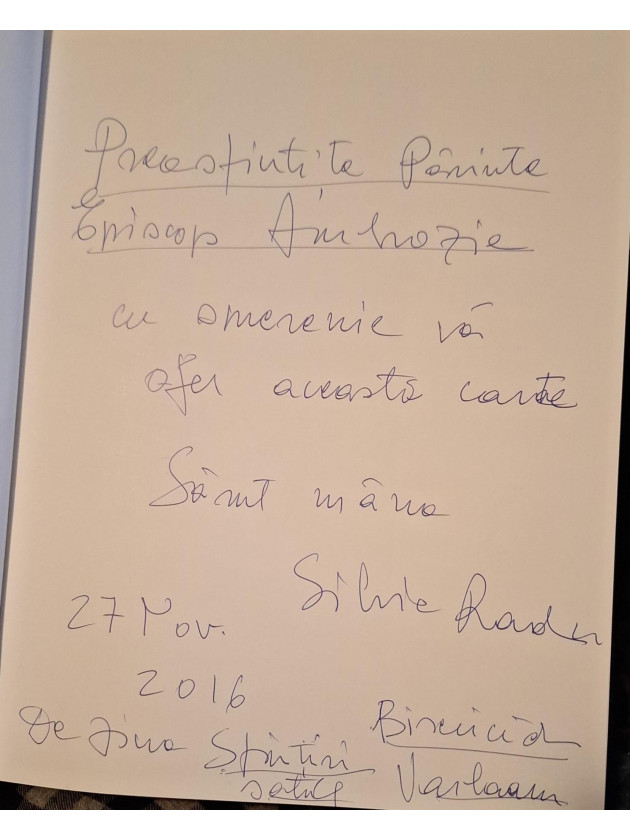 Preasfințite Părinte
Episcop Ambrozie
cu smerenie vă
ofer această carte
Sărut mâna
Silvia Radu
27 Nov.
2016
De ziua Sfințirii
Bisericii
Varlaam